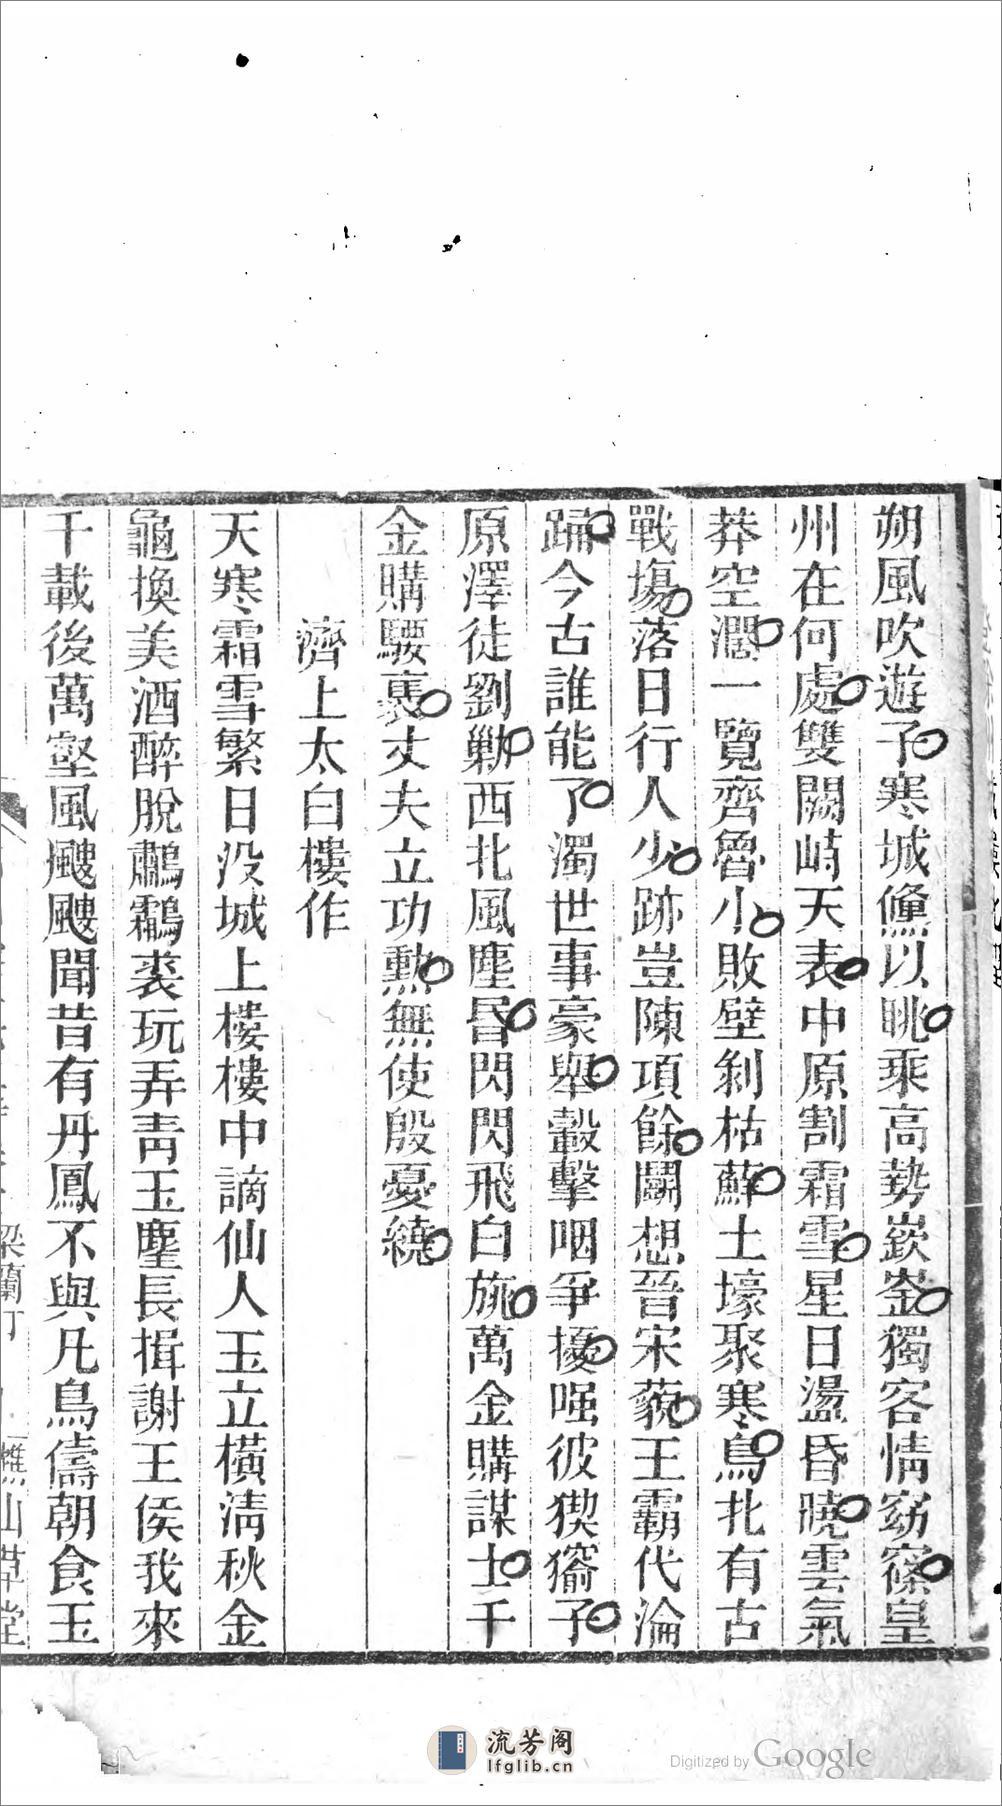 朔風吹遊子寒城儵以眺乘高勢嶔崟獨客情窈窱皇
州在何處雙闕峙天表中原割霜雪星日盪昏曉雲氣
莽空濶一覽齊魯小敗壁剝枯蘚土壕聚寒鳥北有古
戰塲落日行人少跡豈陳項餘鬬想晉宋藐王霸代淪
踊今古誰能了濁世事豪舉轂擊咽爭擾喅彼猰㺄子
原澤徒劉勦西北風塵昬閃閃飛白旐萬金購謀士千
金購騕褭丈夫立功勲無使殷憂繞
濟上太白樓作
天寒霜雪繁日没城上樓樓中謫仙人玉立橫清秋金
龜換美酒醉脫鷫鸘裘玩弄青玉麈長揖謝王侯我來
千載後萬壑風颼颼聞昔有丹鳳不與凡鳥儔朝食玉
梁蘭汀
樵山草堂
流芳阁
lfglib.cn
Digitized by Google